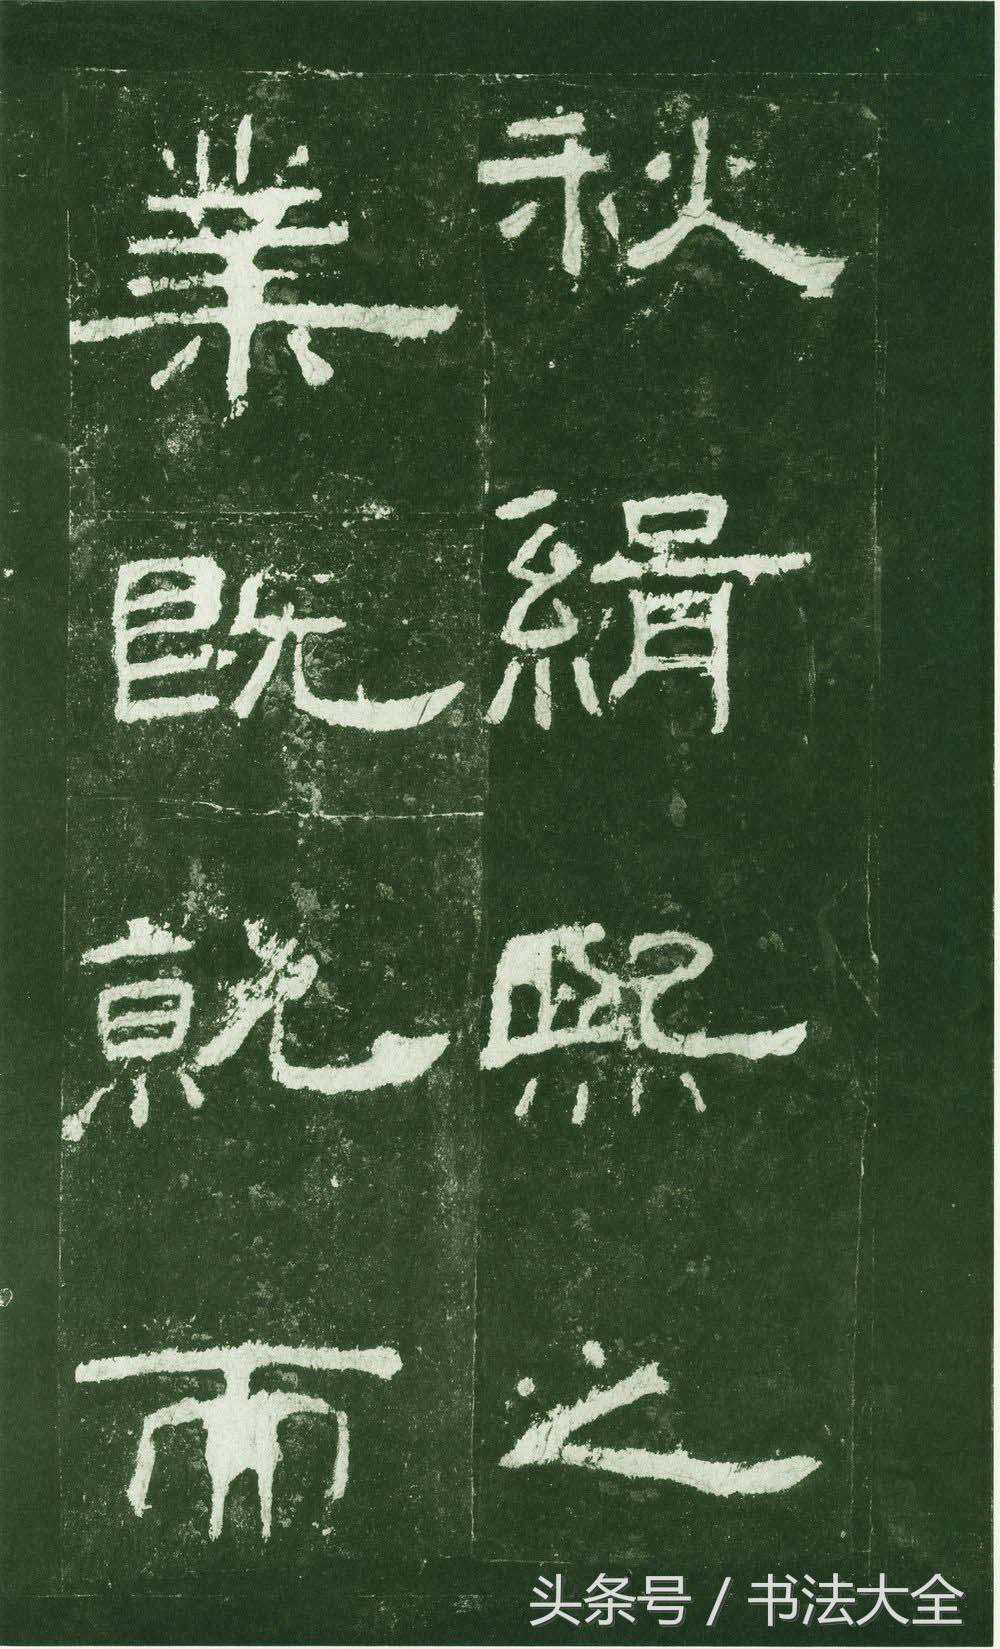 秋緝熙之
業既就而
头条号 / 书法大全